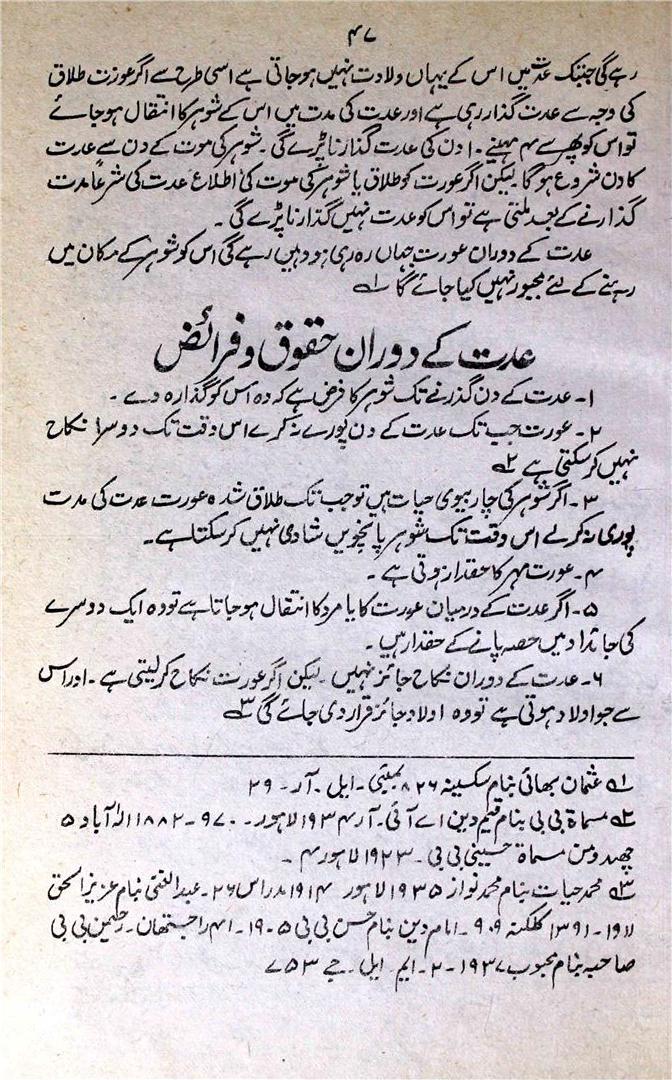 ۴۷
رہے گی جبتک عدت میں اس کے یہاں ولادت نہیں ہو جاتی ہے اسی طرح سے اگر عورت طلاق
کی وجہ سے عدت گذار رہی ہے اور عدت کی مدت میں اس کے شوہر کا انتقال ہو جائے
تو اس کو پھر سے ۴ مہینے ۱۰ دن کی عدت گذارنا پڑے گی۔ شوہر کی موت کے دن سے عدت
کا دن شروع ہوگا۔ لیکن اگر عورت کو طلاق یا شوہر کی موت کی اطلاع عدت کی شرعاً مدت
گذارنے کے بعد ملتی ہے تو اس کو عدت نہیں گذارنا پڑے گی۔
عدت کے دوران عورت جہاں رہ رہی ہو وہیں رہے گی اس کو شوہر کے مکان میں
رہنے کے لئے مجبور نہیں کیا جائے گا ۱؎
عدت کے دوران حقوق و فرائض
۱۔ عدت کے دن گذرنے تک شوہر کا فرض ہے کہ وہ اس کو گذارہ دے۔
۲۔ عورت جب تک عدت کے دن پورے نہ کرے اس وقت تک دوسرا نکاح
نہیں کر سکتی ہے ۲؎
۳۔ اگر شوہر کی چار بیوی حیات ہیں تو جب تک طلاق شدہ عورت عدت کی مدت
پوری نہ کرلے اس وقت تک شوہر پانچویں شادی نہیں کر سکتا ہے۔
۴۔ عورت مہر کا حقدار ہوتی ہے۔
۵۔ اگر عدت کے درمیان عورت کا یا مرد کا انتقال ہو جاتا ہے تو وہ ایک دوسرے
کی جائداد میں حصہ پانے کے حقدار ہیں۔
۶۔ عدت کے دوران نکاح جائز نہیں۔ لیکن اگر عورت نکاح کرلیتی ہے۔ اور اس
سے جو اولاد ہوتی ہے تو وہ اولاد جائز قرار دی جائے گی ۳؎
۱؎ عثمان بھائی بنام سکینہ ۸۲۶ بمبئی۔ ایل۔ آر۔ ۲۹
۲؎ مسماۃ بی بی بنام قیم دین اے آئی۔ آر ۱۹۳۴ لاہور۔ ۹۷۰۔ ۱۸۸۲ الہٰ آباد ۵
چھدو من مسماۃ حسینی بی بی۔ ۱۹۲۳ لاہور ۴۔
۳؎ محمد حیات بنام محمد نواز ۱۹۳۵ لاہور ۱۹۱۴ مدراس ۲۶۔ عبدالغنی بنام عزیز الحق
۱۹۱۱۔ ۱۳۹۱ کلکتہ ۹۰۹۔ امام دین بنام حسن بی بی ۱۹۰۵۔ ۴۱ راجستھان۔ رحیمن بی بی
صاحبہ بنام محبوب ۱۹۳۷۔ ۲۔ ایم۔ ایل۔ جے ۷۵۳